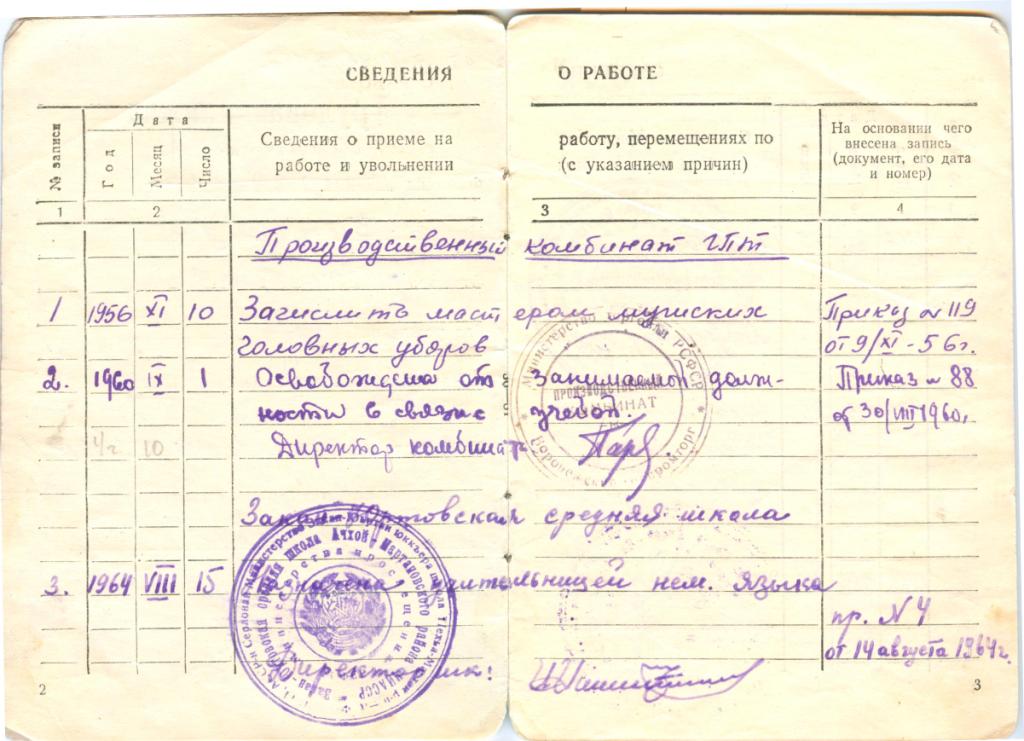 СВЕДЕНИЯ О РАБОТЕ
№ записи
Дата
Год
Месяц
Число
Сведения о приеме на работу, перемещениях по
работе и увольнении (с указанием причин)
На основании чего
внесена запись
(документ, его дата
и номер)
1 2 3 4
Производственный комбинат ГПТ
1 1956 XI 10 Зачислить мастером мужских Приказ № 119
головных уборов от 9/XI-56г.
2. 1960 IX 1 Освобождена от занимаемой долж- Приказ № 88
ности в связи с учебой. от 30/VIII 1960г.
Директор комбината
Министерство торговли РСФСР
ПРОИЗВОДСТВЕННЫЙ
КОМБИНАТ
Закан-Юртовская средняя школа
3. 1964 VIII 15 учительницей нем. языка
пр. N 4
от 14 августа 1964г.
Директор шк:
школа Ачхой-Мартановского района ЧИАССР
Министерство просвещения
2 3